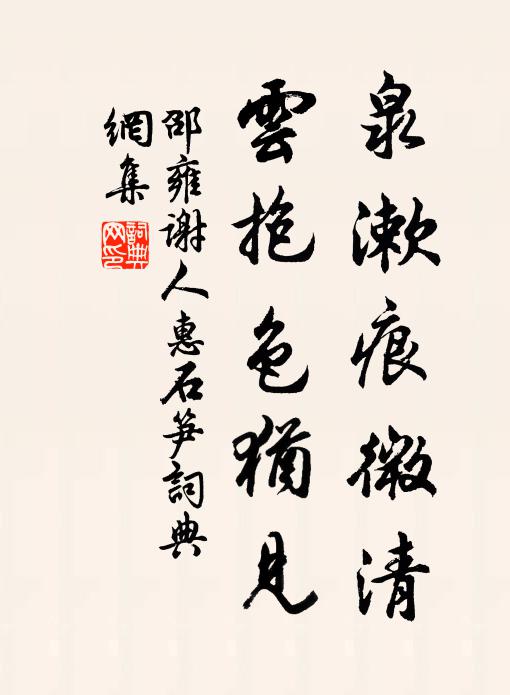 泉漱痕微清
雲抱色猶見
邵雍謝人惠石笋詞典
網集
詞典
网印